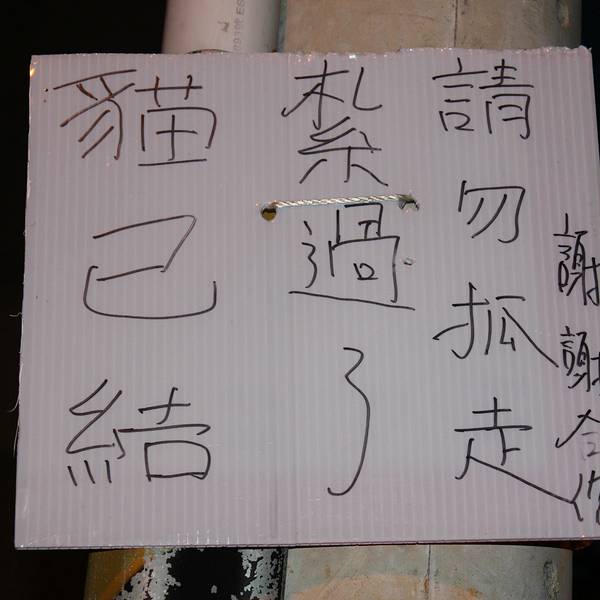 貓已結
紮過了
請勿抓走
謝謝合作